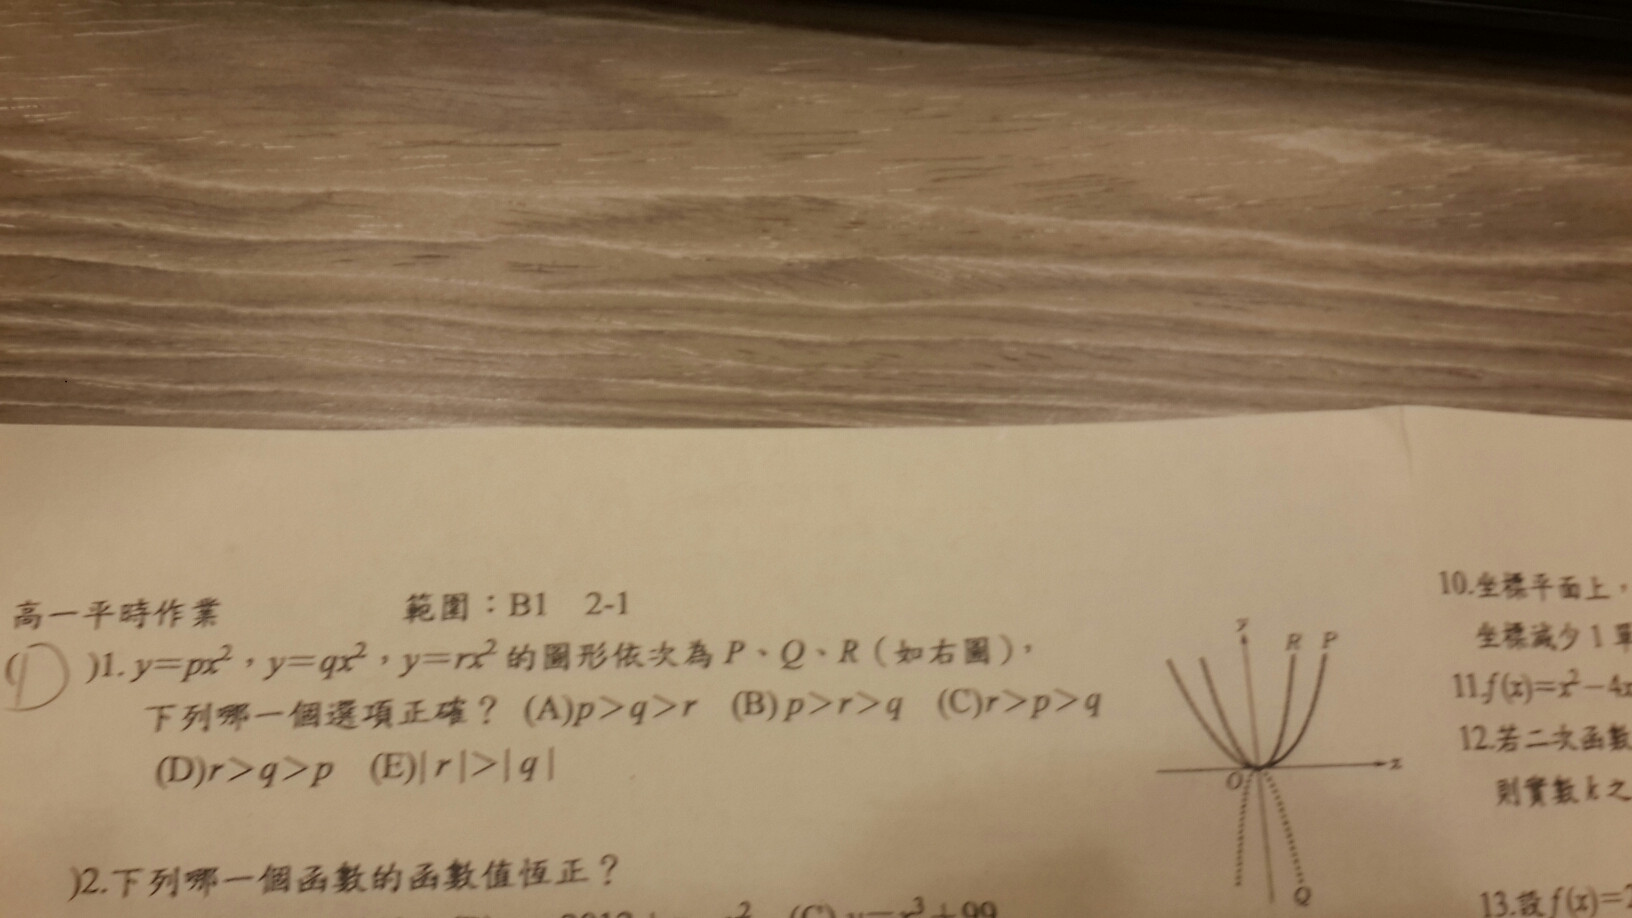 高一平時作業 範圍：B1 2-1
(D)1. y=px²，y=qx²，y=rx² 的圖形依次為 P、Q、R（如右圖），
下列哪一個選項正確？ (A)p>q>r (B)p>r>q (C)r>p>q
(D)r>q>p (E)|r|>|q|
)2.下列哪一個函數的函數值恆正？
(C) y=x³+99
y
R P
O
x
Q
10.坐標平面上，
坐標減少1單
11.f(x)=x²-4x
12.若二次函數
則實數k之
13.設f(x)=